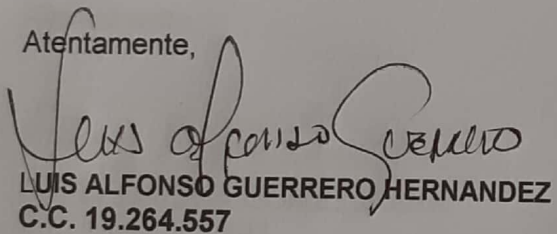 Atentamente,
Luis Alfonso Guerrero
LUIS ALFONSO GUERRERO HERNANDEZ
C.C. 19.264.557